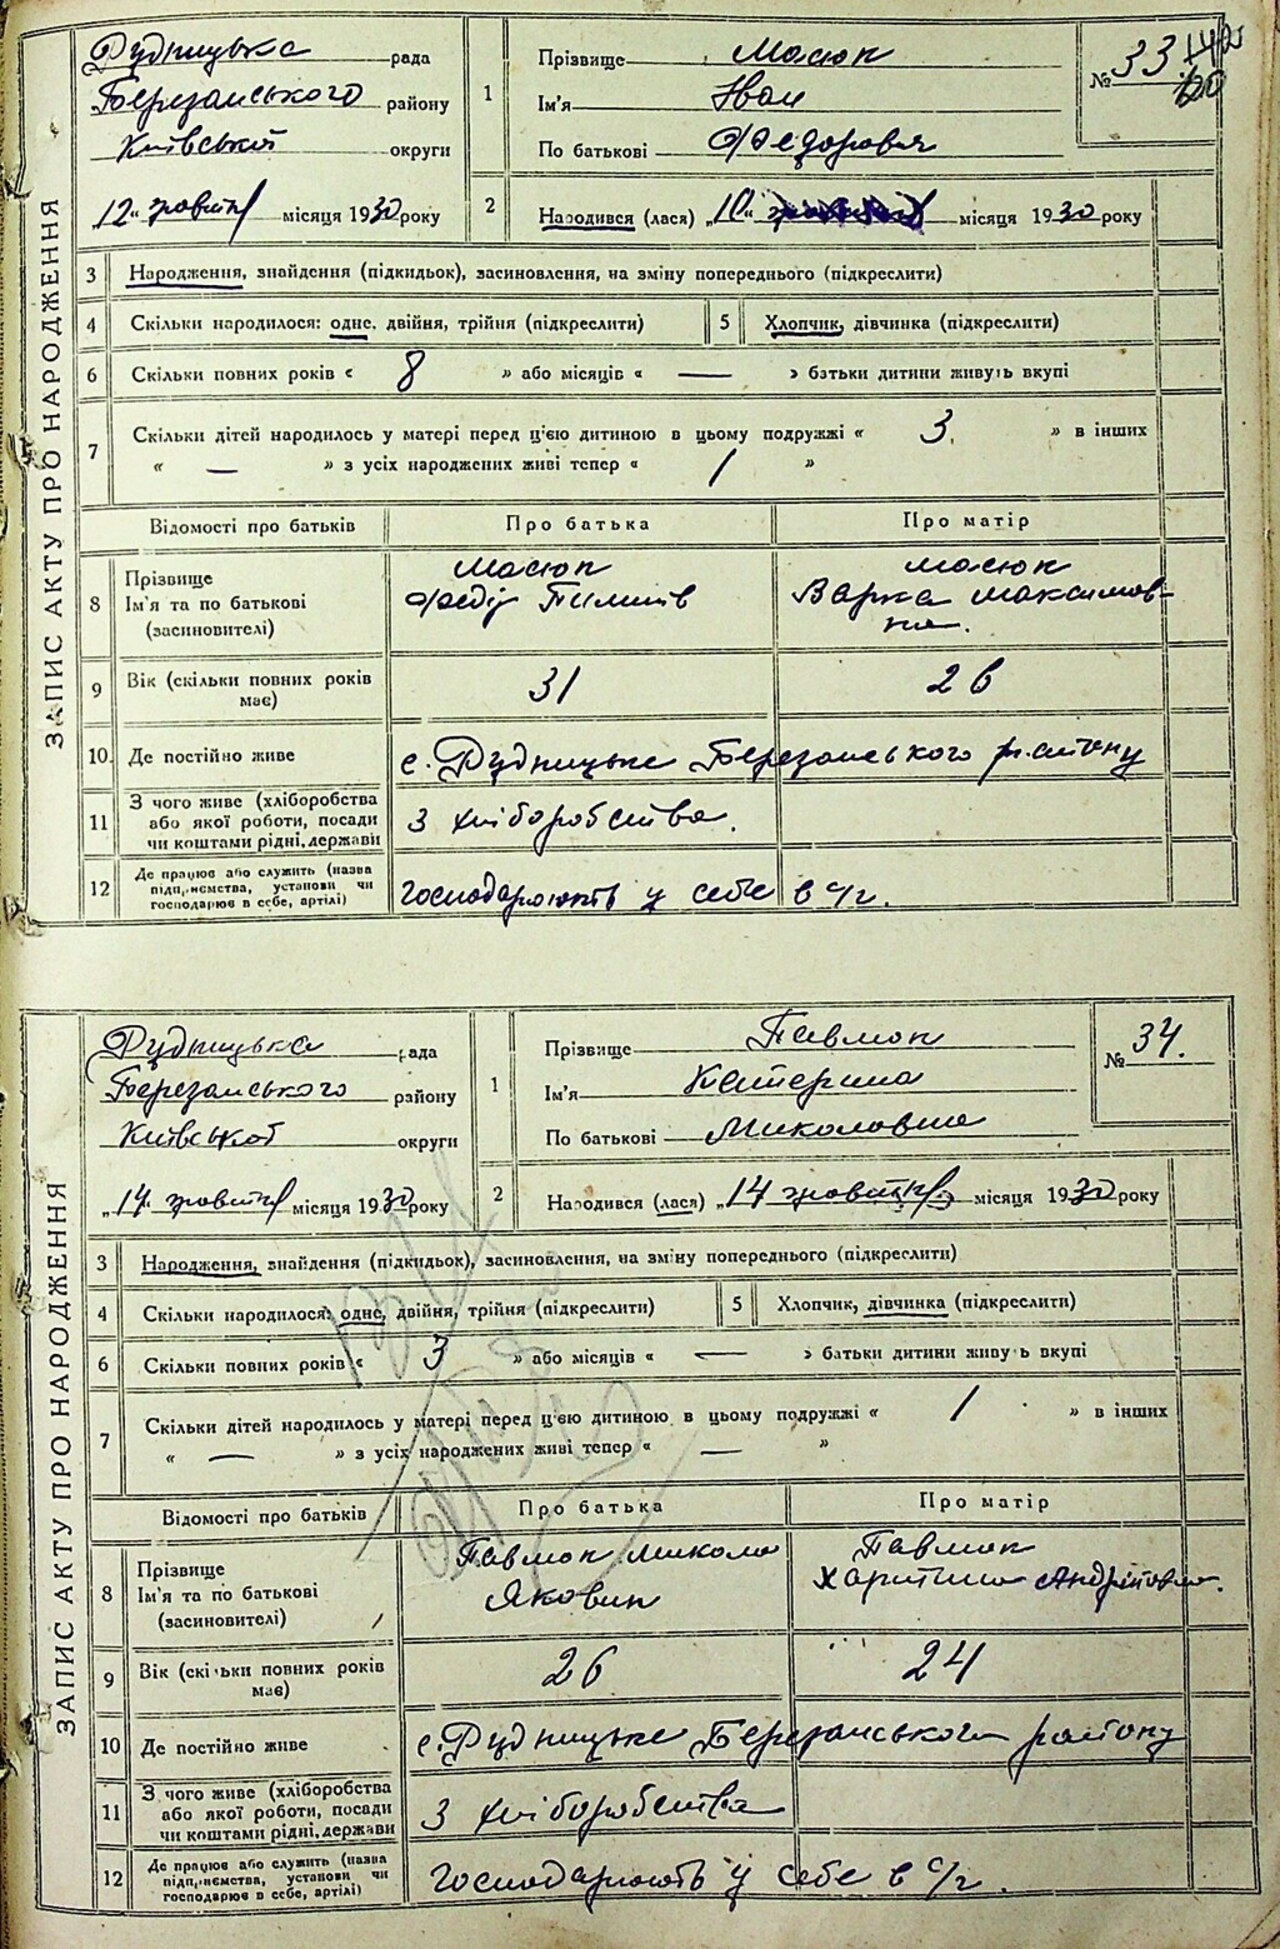 ЗАПИС АКТУ ПРО НАРОДЖЕННЯ
Рудницька рада
Березанського району
Київської округи
„12“ травня місяця 1930 року
1 Прізвище Масюк
Ім'я Іван
По батькові Федорович
№ 33.
2 Народився (лася) „10“ місяця 1930 року
3 Народження, знайдення (підкидьок), засиновлення, на зміну попереднього (підкреслити)
4 Скільки народилося: одне, двійня, трійня (підкреслити) 5 Хлопчик, дівчинка (підкреслити)
6 Скільки повних років « 8 » або місяців « — » батьки дитини живуть вкупі
7 Скільки дітей народилось у матері перед ц'єю дитиною в цьому подружжі « 3. » в інших
« — » з усіх народжених живі тепер « 1 »
Відомості про батьків Про батька Про матір
8 Прізвище Ім'я та по батькові (засиновителі)
Масюк Федір Пилипів
Масюк Варка Максимовна.
9 Вік (скільки повних років має) 31 26
10. Де постійно живе с. Рудницьке Березанського району
11 З чого живе (хліборобства
або якої роботи, посади
чи коштами рідні, держави
З хліборобства.
12 Де працює або служить (назва
підприємства, установи чи
господарює в себе, артілі)
Господарюють у себе в с/г.
ЗАПИС АКТУ ПРО НАРОДЖЕННЯ
Рудницька рада
Березанського району
Київської округи
„14“ травня місяця 1930 року
1 Прізвище Павлюк
Ім'я Катерина
По батькові Миколовна
№ 34.
2 Народився (лася) „14 травня місяця 1930 року
3 Народження, знайдення (підкидьок), засиновлення, на зміну попереднього (підкреслити)
4 Скільки народилося: одне, двійня, трійня (підкреслити) 5 Хлопчик, дівчинка (підкреслити)
6 Скільки повних років « 3 » або місяців « — » батьки дитини живуть вкупі
7 Скільки дітей народилось у матері перед ц'єю дитиною в цьому подружжі « 1 » в інших
« — » з усіх народжених живі тепер « — »
Відомості про батьків Про батька Про матір
8 Прізвище Ім'я та по батькові (засиновителі)
Павлюк Микола Якович
Павлюк Харитина Андріївна.
9 Вік (скільки повних років має) 26 24
10 Де постійно живе с. Рудницьке Березанського району
11 З чого живе (хліборобства
або якої роботи, посади
чи коштами рідні, держави
З хліборобства
12 Де працює або служить (назва
підприємства, установи чи
господарює в себе, артілі)
Господарюють у себе в с/г.